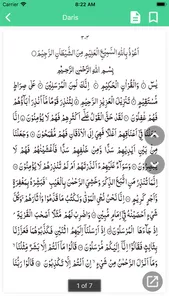 8:22 AM
Daris
أَعُوذُ بِاللَّهِ السَّمِيعِ الْعَلِيمِ مِنَ الشَّيْطَانِ الرَّجِيمِ
بِسْمِ اللَّهِ الرَّحْمٰنِ الرَّحِيمِ
يسٓ ۝ وَالْقُرْآنِ الْحَكِيمِ ۝ إِنَّكَ لَمِنَ الْمُرْسَلِينَ ۝ عَلَىٰ صِرَاطٍ
مُسْتَقِيمٍ ۝ تَنْزِيلَ الْعَزِيزِ الرَّحِيمِ ۝ لِتُنْذِرَ قَوْمًا مَا أُنْذِرَ آبَاؤُهُمْ
فَهُمْ غَافِلُونَ ۝ لَقَدْ حَقَّ الْقَوْلُ عَلَىٰ أَكْثَرِهِمْ فَهُمْ لَا يُؤْمِنُونَ ۝ إِنَّا
جَعَلْنَا فِي أَعْنَاقِهِمْ أَغْلَالًا فَهِيَ إِلَى الْأَذْقَانِ فَهُمْ مُقْمَحُونَ ۝ وَجَعَلْنَا
مِنْ بَيْنِ أَيْدِيهِمْ سَدًّا وَمِنْ خَلْفِهِمْ سَدًّا فَأَغْشَيْنَاهُمْ فَهُمْ لَا
يُبْصِرُونَ ۝ وَسَوَاءٌ عَلَيْهِمْ أَأَنْذَرْتَهُمْ أَمْ لَمْ تُنْذِرْهُمْ لَا يُؤْمِنُونَ ۝
إِنَّمَا تُنْذِرُ مَنِ اتَّبَعَ الذِّكْرَ وَخَشِيَ الرَّحْمٰنَ بِالْغَيْبِ فَبَشِّرْهُ بِمَغْفِرَةٍ
وَأَجْرٍ كَرِيمٍ ۝ إِنَّا نَحْنُ نُحْيِي الْمَوْتَىٰ وَنَكْتُبُ مَا قَدَّمُوا وَآثَارَهُمْ وَكُلَّ
شَيْءٍ أَحْصَيْنَاهُ فِي إِمَامٍ مُبِينٍ ۝ وَاضْرِبْ لَهُمْ مَثَلًا أَصْحَابَ الْقَرْيَةِ
إِذْ جَاءَهَا الْمُرْسَلُونَ ۝ إِذْ أَرْسَلْنَا إِلَيْهِمُ اثْنَيْنِ فَكَذَّبُوهُمَا فَعَزَّزْنَا
بِثَالِثٍ فَقَالُوا إِنَّا إِلَيْكُمْ مُرْسَلُونَ ۝ قَالُوا مَا أَنْتُمْ إِلَّا بَشَرٌ مِثْلُنَا
وَمَا أَنْزَلَ الرَّحْمٰنُ مِنْ شَيْءٍ إِنْ أَنْتُمْ إِلَّا تَكْذِبُونَ ۝ قَالُوا رَبُّنَا
1 of 7